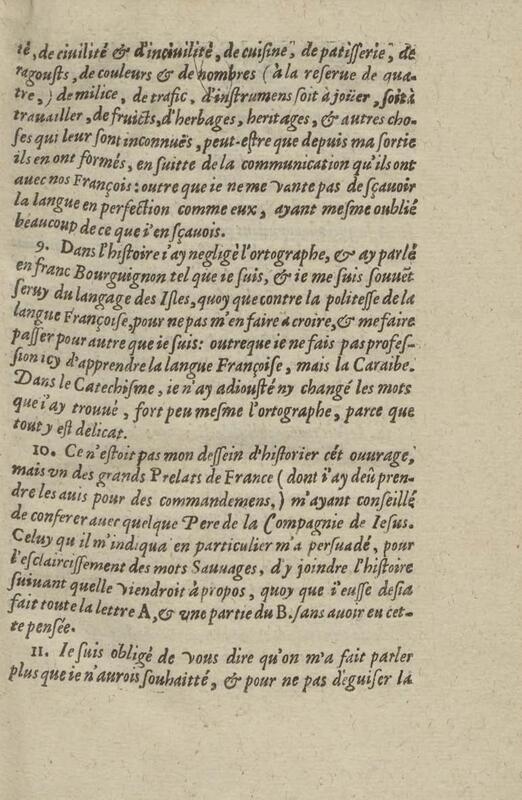 té, de ciuilité & d'inciuilité, de cuisine, de patisserie, de
ragousts, de couleurs & de nombres (à la reserue de qua-
tre,) de milice, de trafic, d'instrumens soit à joüer, soit à
trauailler, de fruicts, d'herbages, heritages, & autres cho-
ses qui leur sont inconnuës, peut-estre que depuis ma sortie
ils en ont formés, en suitte de la communication qu'ils ont
auec nos François: outre que ie ne me vante pas de sçauoir
la langue en perfection comme eux, ayant mesme oublié
beaucoup de ce que i'en sçauois.
9. Dans l'histoire i'ay negligé l'ortographe, & ay parlé
en franc Bourguignon tel que ie suis, & ie me suis souuẽt
seruy du langage des Isles, quoy que contre la politesse de la
langue Françoise, pour ne pas m'en faire acroire, & me faire
passer pour autre que ie suis: outre que ie ne fais pas profes-
sion icy d'apprendre la langue Françoise, mais la Caraibe.
Dans le Catechisme, ie n'ay adiousté ny changé les mots
que i'ay trouué, fort peu mesme l'ortographe, parce que
tout y est delicat.
10. Ce n'estoit pas mon dessein d'historier cét ouurage,
mais vn des grands Prelats de France (dont i'ay deû pren-
dre les auis pour des commandemens,) m'ayant conseillé
de conferer auec quelque Pere de la Compagnie de Iesus.
Celuy qu'il m'indiqua en particulier m'a persuadé, pour
l'esclaircissement des mots Sauuages, d'y joindre l'histoire
suiuant quelle viendroit à propos, quoy que i'eusse desia
fait toute la lettre A, & vne partie du B. sans auoir eu cet-
te pensée.
11. Ie suis obligé de vous dire qu'on m'a fait parler
plus que ie n'aurois souhaitté, & pour ne pas déguiser la